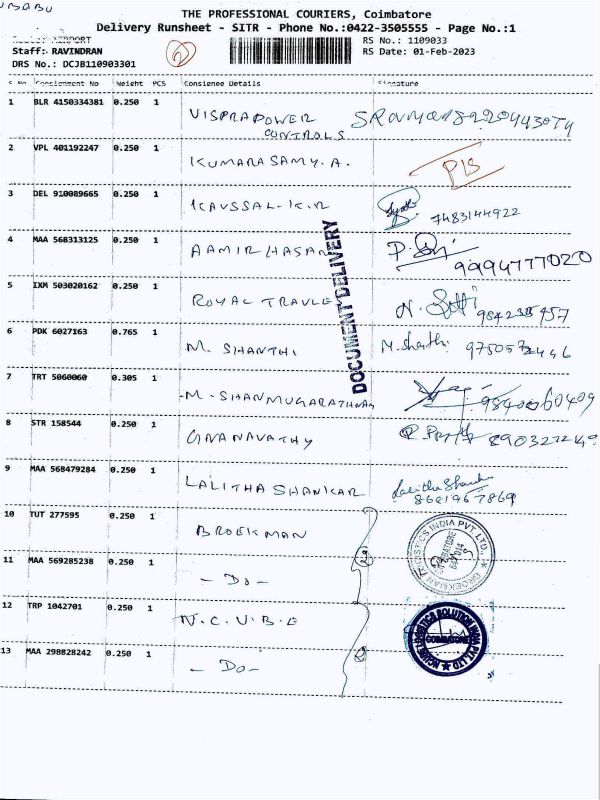 THE PROFESSIONAL COURIERS, Coimbatore
Delivery Runsheet - SITR - Phone No.:0422-3505555 - Page No.:1
AIRPORT
Staff: RAVINDRAN
DRS No.: DCJB110903301
RS No.: 1109033
RS Date: 01-Feb-2023
S No. Consignment No Weight PCS Consignee Details Signature
1 BLR 4150334381 0.250 1 VISPRAPOWER
CONTROLS
2 VPL 401192247 0.250 1 KUMARASAMY. A.
3 DEL 910089665 0.250 1 KAUSSAL. K. R 7483144922
4 MAA 568313125 0.250 1 AAMIR HASAN 9994777020
5 IXM 503020162 0.250 1 ROYAL TRAVLE
6 PDK 6027163 0.765 1 M. SHANTHI M. Shanthi
7 TRT 5060060 0.305 1 M. SHANMUGARATHNAM
8 STR 158544 0.250 1 GNANAVATHY
9 MAA 568479284 0.250 1 LALITHA SHANKAR Lalitha Shankar
8681967869
10 TUT 277595 0.250 1 BROEKMAN
11 MAA 569285238 0.250 1 - DO -
12 TRP 1042701 0.250 1 N. C. U. B. E
13 MAA 298828242 0.250 1 - DO -
DOCUMENT DELIVERY